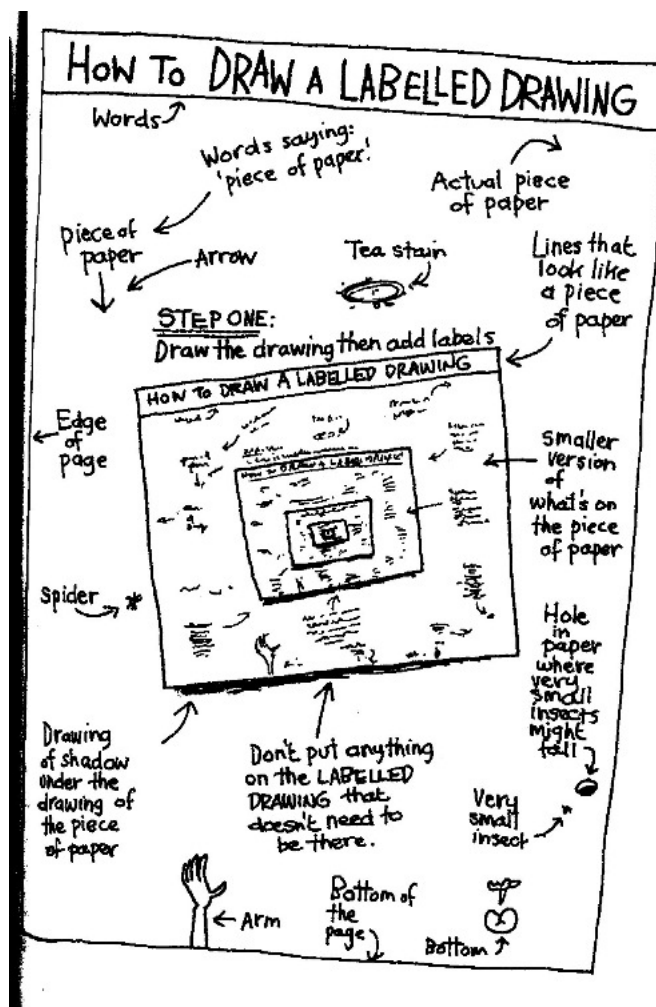 HOW TO DRAW A LABELLED DRAWING
Words
Words saying:
'piece of paper'.
Actual piece
of paper
piece of
paper
Arrow
Tea stain
Lines that
look like
a piece
of paper
STEP ONE:
Draw the drawing then add labels
HOW TO DRAW A LABELLED DRAWING
HOW TO DRAW A LABELLED DRAWING
Edge
of
page
Smaller
version
of
what's on
the piece
of paper
Spider
Hole
in
paper
where
very
small
insects
might
fall
Drawing
of shadow
under the
drawing of
the piece
of paper
Don't put anything
on the LABELLED
DRAWING that
doesn't need to
be there.
Very
small
insect
Arm
Bottom of
the
page
Bottom